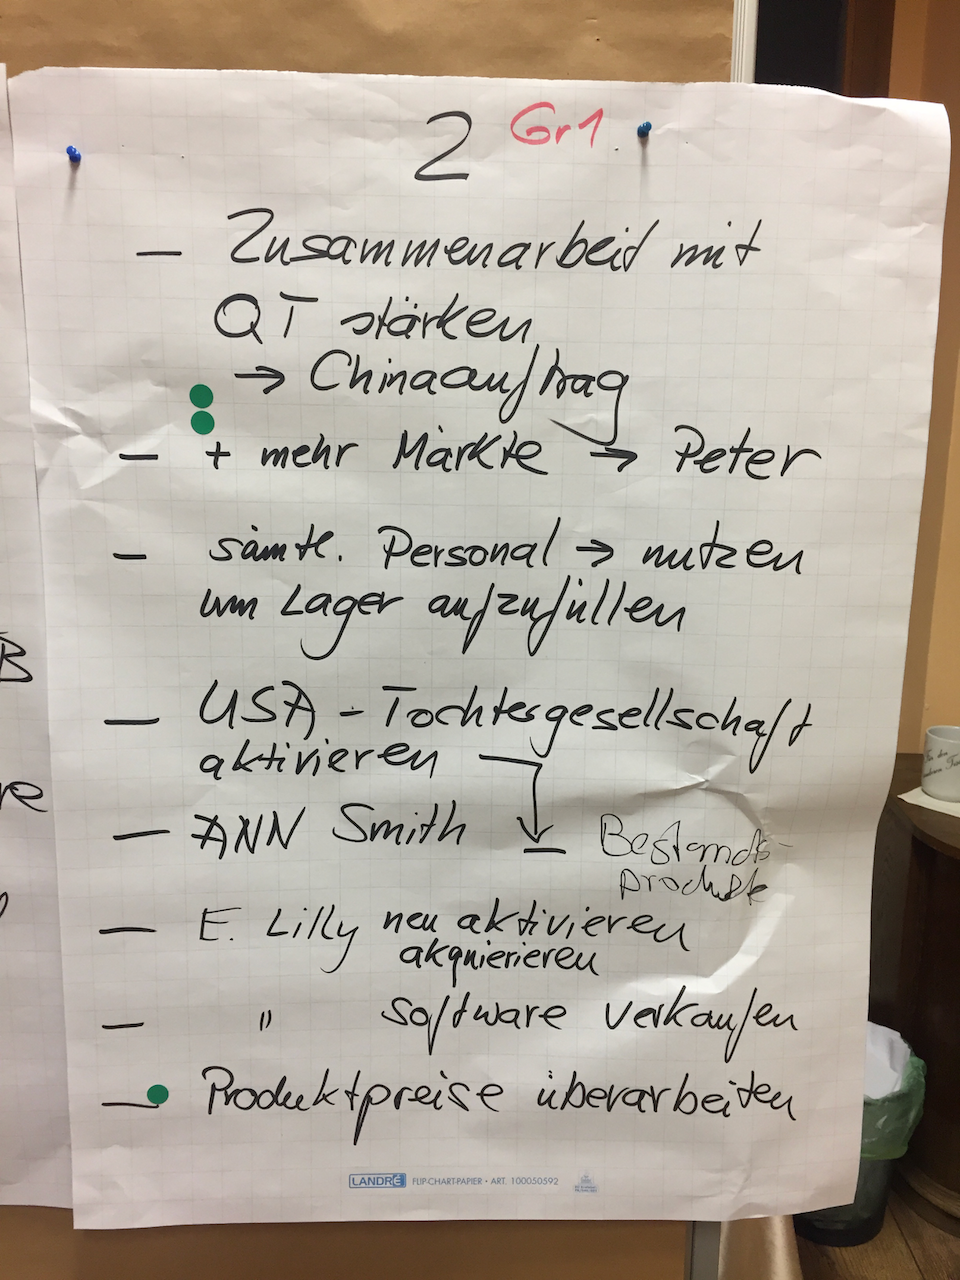 2 Gr1
– Zusammenarbeit mit
QT stärken
→ Chinaauftrag
– + mehr Märkte → Peter
– sämtl. Personal → nutzen
um Lager aufzufüllen
– USA - Tochtergesellschaft
aktivieren
– ANN Smith
Bestands-
produkte
– E. Lilly neu aktivieren
akquierieren
– " Software verkaufen
– Produktpreise überarbeiten
LANDRÉ FLIP-CHART-PAPIER • ART. 100050592
B
re